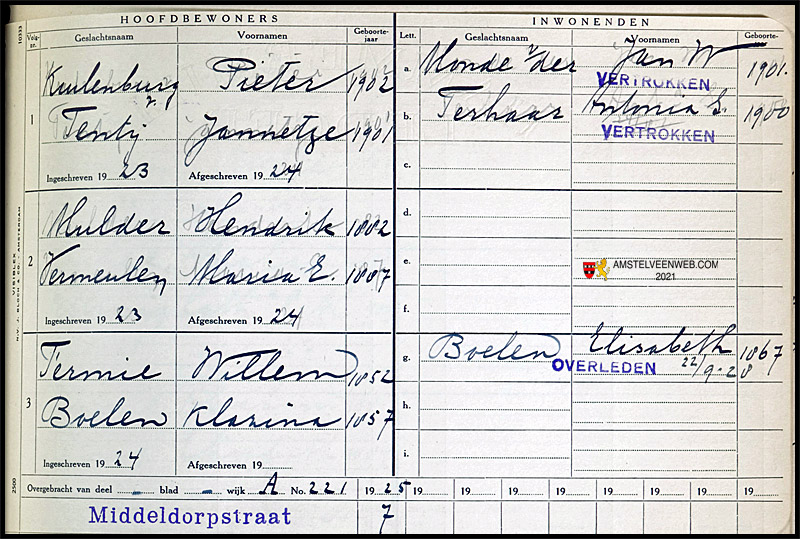 HOOFDBEWONERS
INWONENDEN
Volg-nr. Geslachtsnaam Voornamen Geboorte-jaar
Lett. Geslachtsnaam Voornamen Geboorte-
1
Keulenburg v. Pieter 1902
Tentij Jannetze 1901
Ingeschreven 19 23 Afgeschreven 19 24
a. Monde v/der Jan W 1901.
VERTROKKEN
b. Terhaar Antonia G. 1900
VERTROKKEN
c.
2
Mulder Hendrik 1882
Vermeulen Maria E. 1887
Ingeschreven 19 23 Afgeschreven 19 24
d.
e.
AMSTELVEENWEB.COM
2021
f.
3
Termie Willem 1852
Boelen Klasina 1857
Ingeschreven 19 24 Afgeschreven 19
g. Boelen Elisabeth 1867
OVERLEDEN 22/9-28
h.
i.
Overgebracht van deel blad wijk A No. 221 19 25 19 19 19 19 19 19 19 19
Middeldorpstraat 7
10333
VISIBLEX
N.V. J. BLOCH & CO - AMSTERDAM
2500